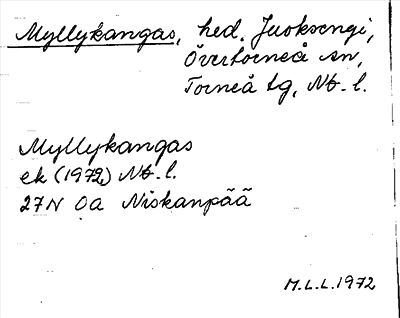 Myllykangas, hed. Juoksengi,
Övertorneå sn,
Torneå tg, Nb. l.
Myllykangas
ek (1972) Nb. l.
27N 0a Niskanpää
M.L.L. 1972